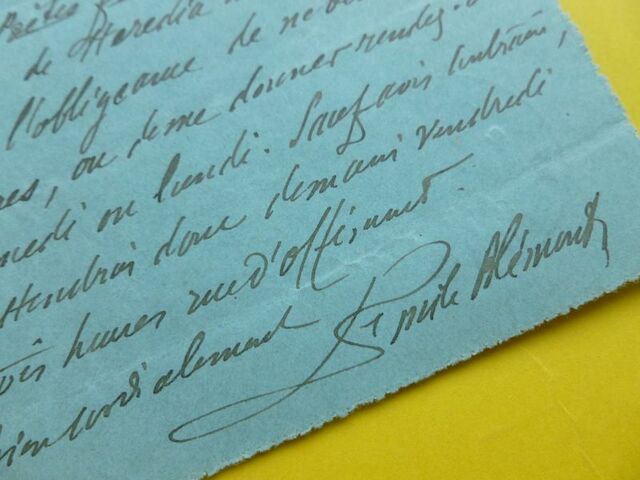 de Heredia
l'obligeance de
ou de me donner rendez-
ou lundi. Sauf avis contraire,
donc demain vendredi
heures rue d'Offémont.
cordialement
Emile Blémont